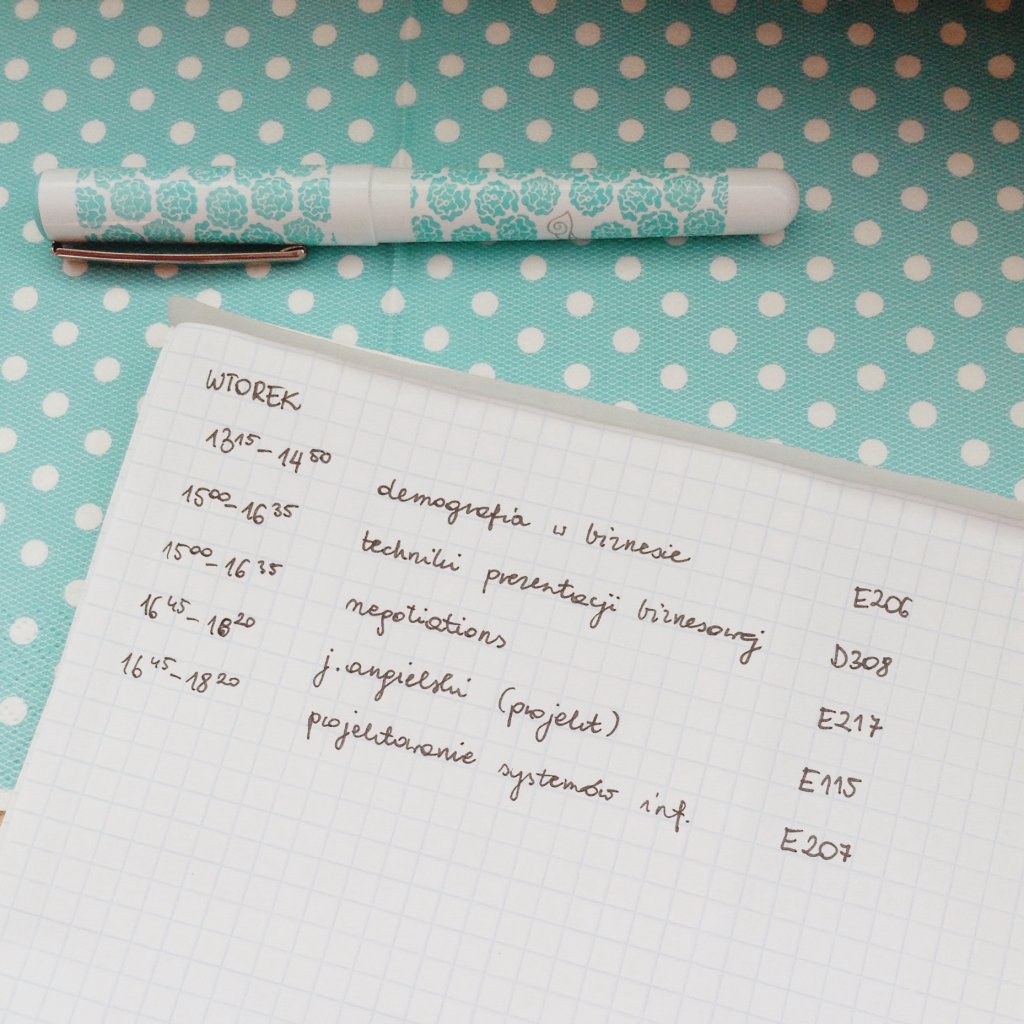 WTOREK
13¹⁵-14⁵⁰ demografia w biznesie E206
15⁰⁰-16³⁵ techniki prezentacji biznesowej D308
15⁰⁰-16³⁵ negotiations E217
16⁴⁵-18²⁰ j. angielski (projekt) E115
16⁴⁵-18²⁰ projektowanie systemów inf. E207